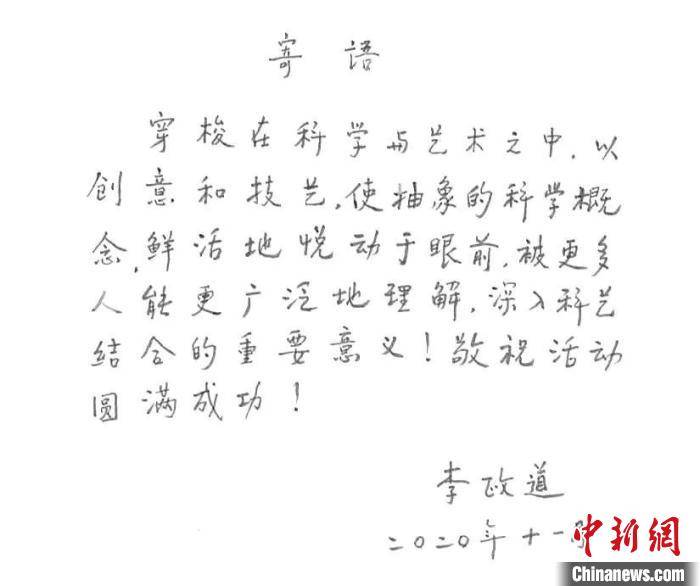 寄语
穿梭在科学与艺术之中,以
创意和技艺,使抽象的科学概
念,鲜活地悦动于眼前,被更多
人能更广泛地理解,深入科艺
结合的重要意义!敬祝活动
圆满成功!
李政道
二〇二〇年十一月
中新网
Chinanews.com